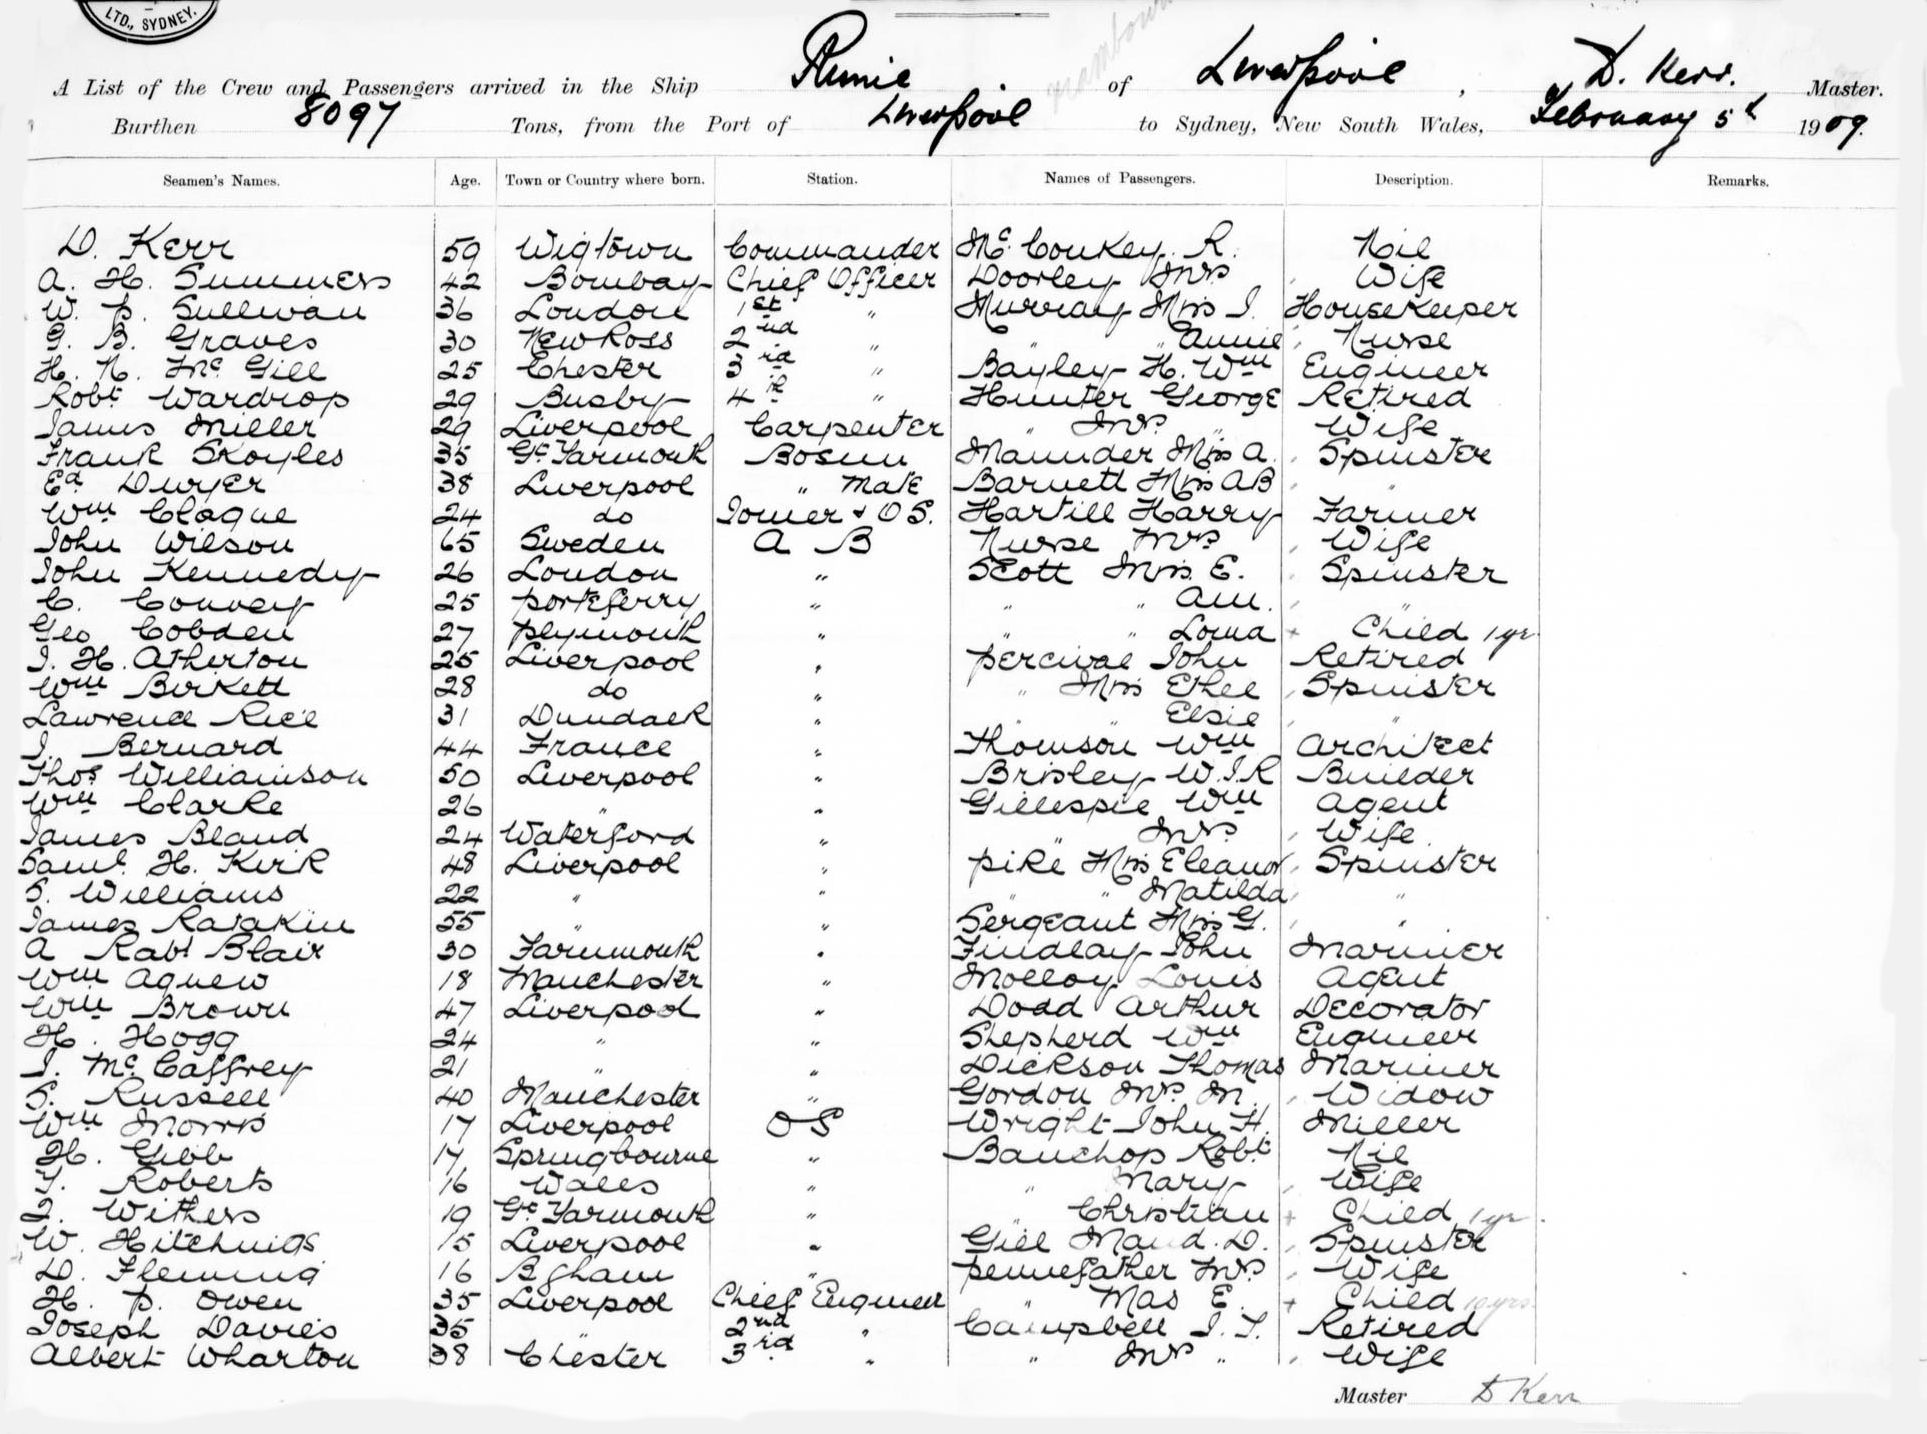 LTD., SYDNEY.
A List of the Crew and Passengers arrived in the Ship Runic of Liverpool, D. Kerr. Master.
Burthen 8097 Tons, from the Port of Liverpool to Sydney, New South Wales, February 5th 1909.
Seamen's Names. Age. Town or Country where born. Station. Names of Passengers. Description. Remarks.
D. Kerr 59 Wigtown Commander McConkey R. Nil
A. H. Summers 42 Bombay Chief Officer Doorley Mrs Wife
W. P. Sullivan 36 London 1st " Murray Miss I. Housekeeper
G. B. Graves 30 New Ross 2nd " " " Annie Nurse
H. N. McGill 25 Chester 3rd " Bayley H. Wm Engineer
Robt Wardrop 29 Busby 4th " Hunter George Retired
James Miller 29 Liverpool Carpenter " Mrs " Wife
Frank Skoyles 35 Gt Yarmouth Bosun Maunder Miss A. Spinster
Ed Dwyer 38 Liverpool " Mate Barnett Miss AB "
Wm Clague 24 do Joiner & OS. Hartill Harry Farmer
John Wilson 65 Sweden A B Nurse Mrs Wife
John Kennedy 26 London " Scott Miss E. Spinster
C. Convey 25 Porteferry " " " Am. "
Geo Cobden 27 Plymouth " " " Lorna Child 1 yr
J. H. Atherton 25 Liverpool " Percival John Retired
Wm Birkett 28 do " " Miss Ethel Spinster
Lawrence Rice 31 Dundalk " " " Elsie "
J. Bernard 44 France " Thomson Wm Architect
Thos Williamson 50 Liverpool " Brisley W. J. R Builder
Wm Clarke 26 " " Gillespie Wm Agent
James Bland 24 Waterford " " Mrs Wife
Saml H. Kirk 48 Liverpool " Pike Miss Eleanor Spinster
S. Williams 22 " " " " Matilda "
James 55 " " Sergeant Miss G. "
A Robt Blair 30 Yarmouth " Findlay John Mariner
Wm Agnew 18 Manchester " Molloy Louis Agent
Wm Brown 47 Liverpool " Dodd Arthur Decorator
H. Hogg 24 " " Shepherd Wm Engineer
J. McCaffrey 21 " " Dickson Thomas Mariner
S. Russell 40 Manchester " Gordon Mrs M. Widow
Wm Morris 17 Liverpool OS Wright John H. Miller
H. Gibb 17 Springbourne " Bauchop Robt Nil
T. Roberts 16 Wales " " Mary Wife
J. Withers 19 Gt Yarmouth " " Christian Child 1 yr.
W. Hitchings 15 Liverpool " Gill Maud. D. Spinster
D. Fleming 16 Bgham " Pennefather Mrs Wife
H. P. Owen 35 Liverpool Chief Engineer " Mas E. Child 10 yrs.
Joseph Davies 35 " 2nd " Campbell J. T. Retired
Albert Wharton 38 Chester 3rd " " Mrs " Wife
Master D Kerr